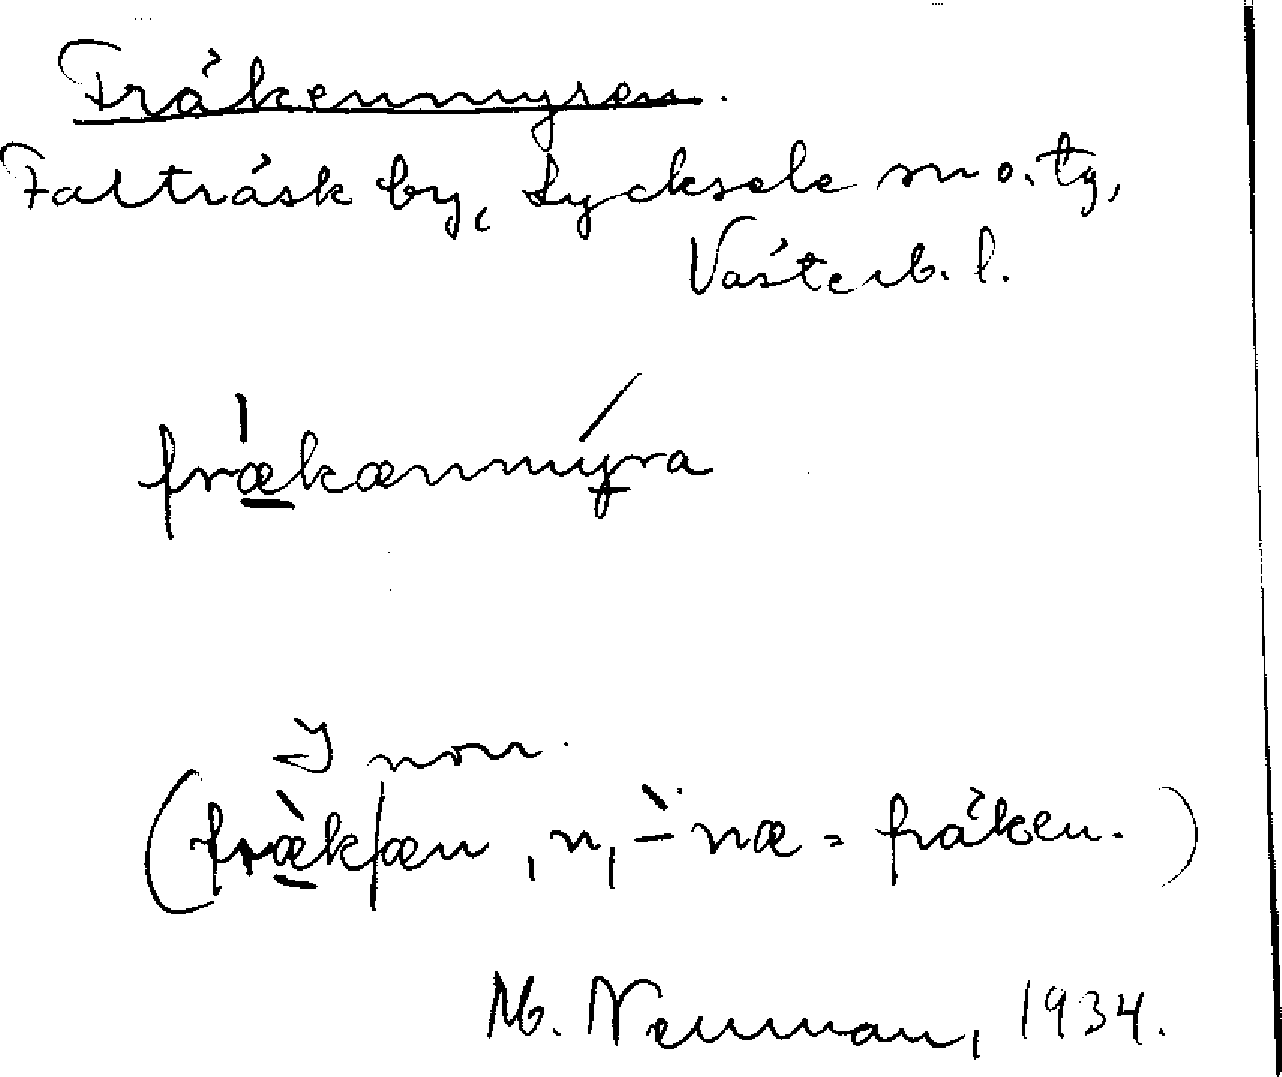 Fräkenmyren.
Falträsk by, Lycksele sn o. tg,
Västerb. l.
frækænmyra
I norr.
(fræk|æn, n, – næ = fräken.)
M. Neuman, 1934.